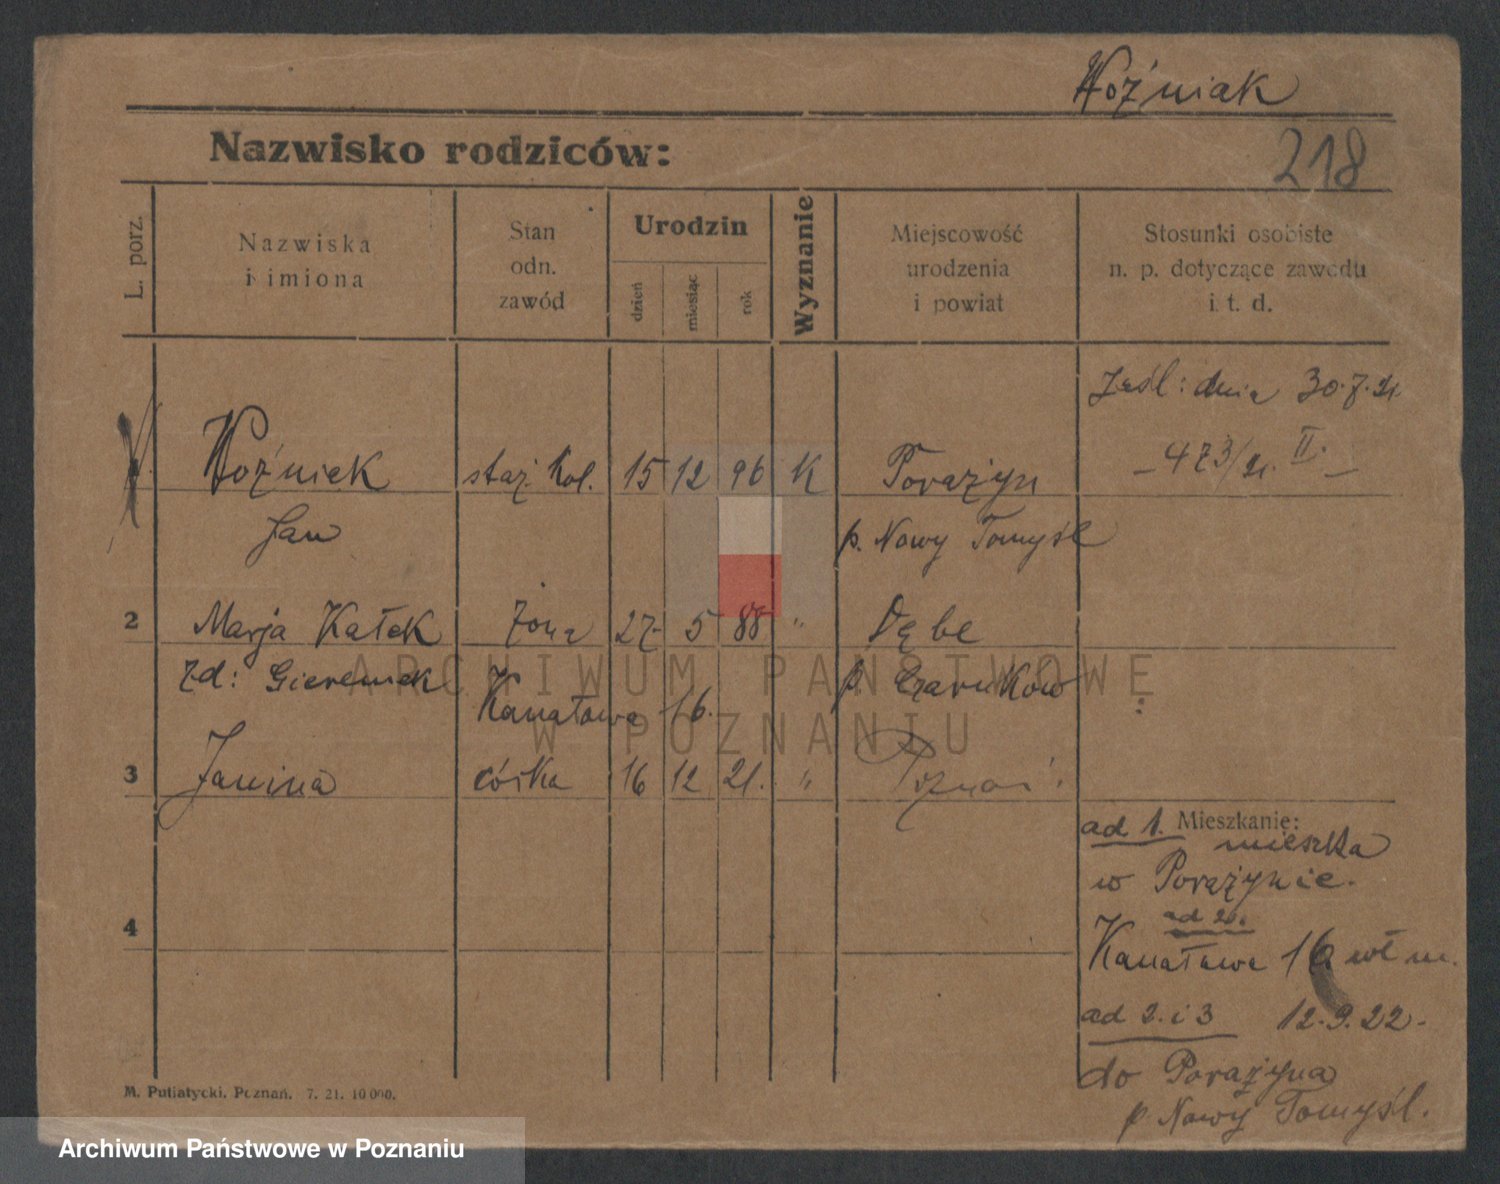 Woźniak
Nazwisko rodziców:
218
L. porz.
Nazwiska
i imiona
Stan
odn.
zawód
Urodzin
dzień
miesiąc
rok
Wyznanie
Miejscowość
urodzenia
i powiat
Stosunki osobiste
n. p. dotyczące zawodu
i. t. d.
dnia 30.7.21.
1 Woźniak staż. kol. 15 12 96 K Porażyn - 473/21. II. -
Jan p. Nowy Tomyśl
2 Marja Kałek żona 27. 5 88 " Dębe
zd: p. Czarnków
Kanałowa 16.
3 Janina córka 16 12 21. " Poznań.
Mieszkanie:
ad 1. mieszka
w Porażynie.
4
ad 2.
Kanałowa 16
ad 2. i 3 12.9.22.
do Porażyna
p Nowy Tomyśl.
M. Putiatycki, Poznań. 7. 21. 10 000.
ARCHIWUM PAŃSTWOWE
W POZNANIU
Archiwum Państwowe w Poznaniu